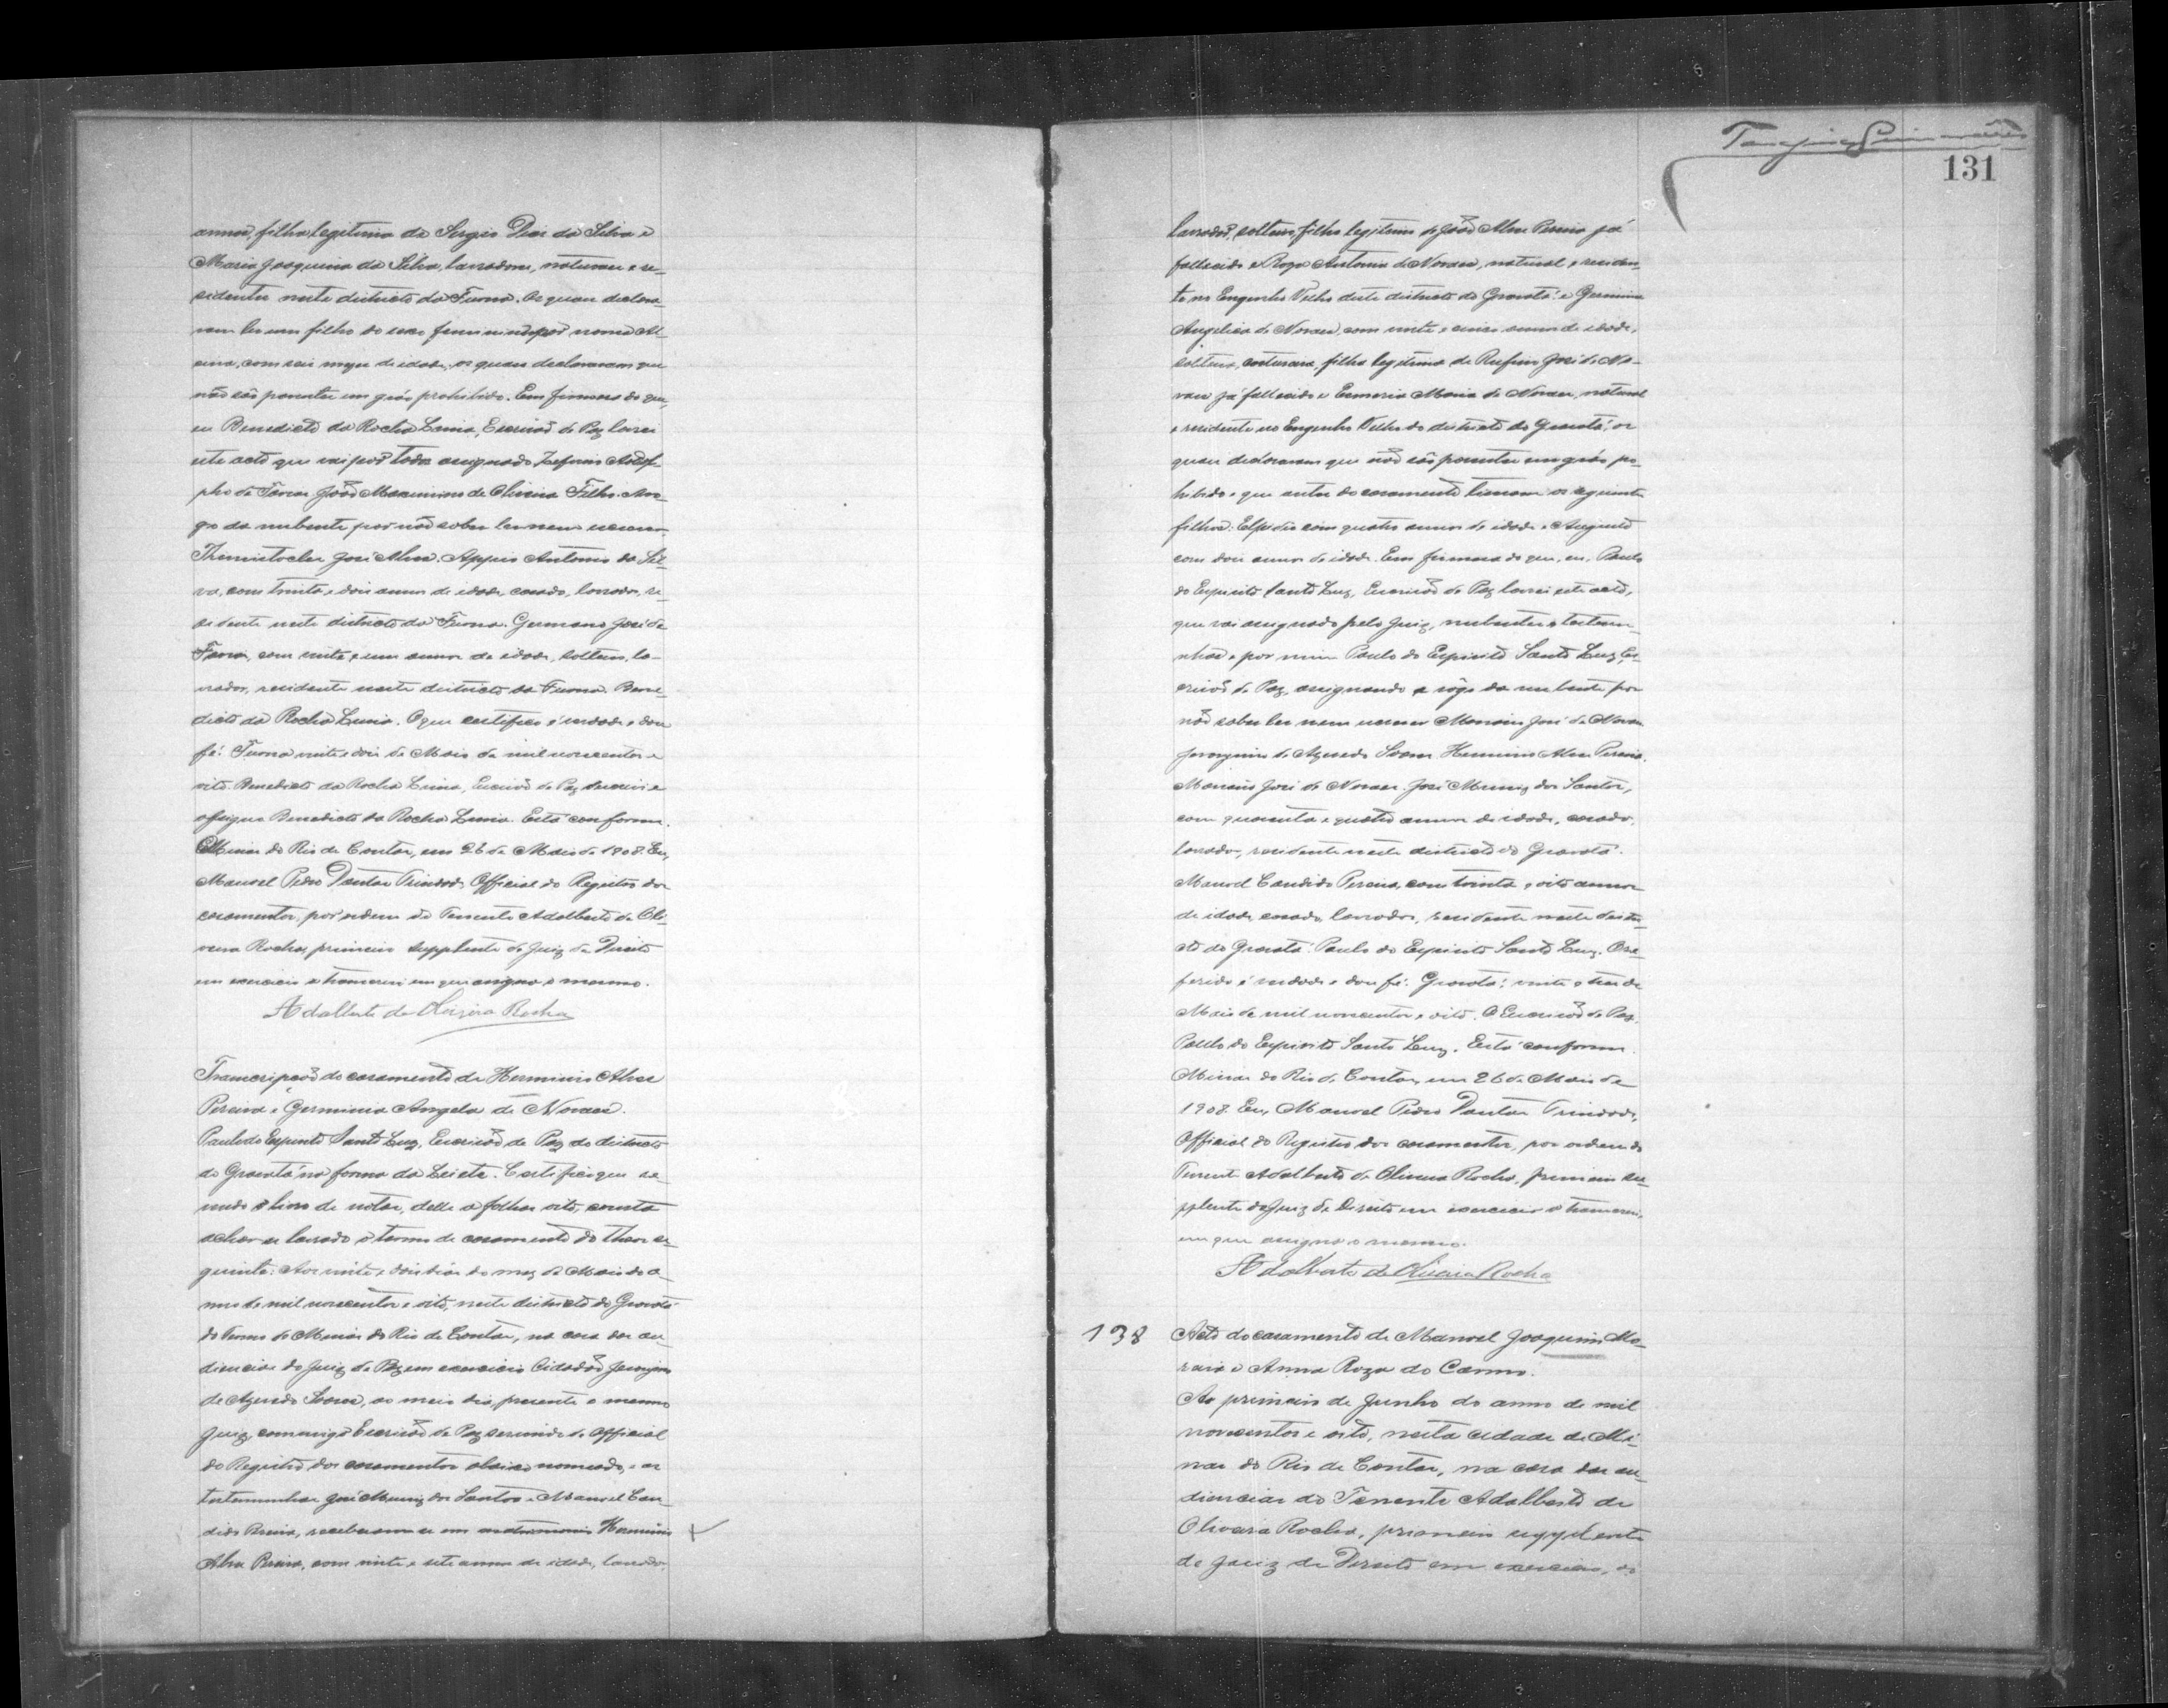 annos, filha legitima de Sergio Dias da Silva e
Maria Joaquina da Silva, lavradores, naturaes e re-
sidentes neste districto da Furna. Os quaes declara
ram ter um filho do sexo feminino por nome Al-
com seis mezes de idade, os quaes declararam que
não são parentes em gráo prohibido. Em firmeza do que,
eu Benedicto da Rocha Lima, Escrivão de Paz lavrei
este acto que vai por todos assignado. 
pho de João Maximiano de Oliveira Filho. Aro-
go da nubente por não saber ler nem escrever.
Themistocles José Alves. Antonio da Sil-
va, com trinta e dois annos de idade, casado, lavrador, re-
sidente neste districto da Furna. Germano José de
com vinte e um annos de idade, solteiro, la-
vrador, residente neste districto da Furna. Bene-
dicto da Rocha Lima. O que certifico é verdade e dou
fé. Furna vinte e dois de Maio de mil novecentos e
oito. Benedicto da Rocha Lima, Escrivão de Paz escrevi e
assigno Benedicto da Rocha Lima. Está conforme.
Minas do Rio de Contas, em 26 de Maio de 1908. Eu,
Manoel Pedro Dantas Trindade Official do Registro dos
casamentos, por ordem do Tenente Adalberto de Oli-
veira Rocha, primeiro supplente do Juiz de Direito
em exercicio o transcrevi em que assigna o mesmo.
Adalberto de Oliveira Rocha
Transcripção do casamento de Herminio Alves
Pereira e Germinia Angela de Novaes.
Paulo do Espirito Santo Luz, Escrivão de Paz do districto
do Gravatá na forma da Lei etc. Certifico que re-
vendo o livro de notas, delle a folhas oito, consta
achar-se lavrado o termo de casamento do theor se-
guinte: Aos vinte e dois dias do mez de Maio do a-
nno de mil novecentos e oito, neste districto do Gravatá
do Termo de Minas do Rio de Contas, na casa das au-
diencias do Juiz de Paz em exercicio Cidadão
de Azevedo Soares, ao meio dia, presente o mesmo
Juiz, commigo Escrivão de Paz servindo de Official
do Registro dos casamentos abaixo nomeado, e as
testemunhas José Muniz dos Santos e Manoel Can-
dido Pereira, receberam-se em matrimonio Herminio
Alves Pereira, com vinte e sete annos de idade, lavrador,
131
lavrador, solteiro, filho legitimo de João Alves Pereira já
fallecido e Roza Antonia de Novaes, natural e residen-
te no Engenho Velho deste districto do Gravatá: e Germinia
Angelica de Novaes, com vinte e cinco annos de idade,
solteira, costureira, filha legitima de Rufino José de No-
vaes já fallecido e Maria de Novaes, natural
e residente no Engenho Velho do districto do Gravatá, os
quaes declararam que não são parentes em gráo pro-
hibido e que antes do casamento tiveram os seguintes
filhos: Elpidio com quatro annos de idade e Augusto
com dois annos de idade. Em firmeza do que, eu, Paulo
do Espirito Santo Luz, Escrivão de Paz lavrei este acto,
que vai assignado pelo Juiz, nubentes e testemu-
nhas e por mim Paulo do Espirito Santo Luz, Es-
crivão de Paz, assignando a rôgo da nubente por
não saber ler nem escrever José de Novaes
de Azevedo Soares Herminio Alves Pereira.
José de Novaes. José Muniz dos Santos,
com quarenta e quatro annos de idade, casado,
lavrador, residente neste districto do Gravatá.
Manoel Candido Pereira, com trinta e oito annos
de idade, casado, lavrador, residente neste distri-
cto do Gravatá. Paulo do Espirito Santo Luz. O re-
ferido é verdade e dou fé. Gravatá, vinte e tres de
Maio de mil novecentos e oito. O Escrivão de Paz,
Paulo do Espirito Santo Luz. Está conforme.
Minas do Rio de Contas, em 26 de Maio de
1908. Eu, Manoel Pedro Dantas Trindade,
Official do Registro dos casamentos, por ordem do
Tenente Adalberto de Oliveira Rocha, primeiro su-
pplente do Juiz de Direito em exercicio o transcrevi,
em que assigna o mesmo.
Adalberto de Oliveira Rocha
138 Acto do casamento de Manoel Joaquim Mo-
raes e Anna Roza do Carmo.
Ao primeiro de Junho do anno de mil
novecentos e oito, nesta cidade de Mi-
nas do Rio de Contas, na casa das au-
diencias do Tenente Adalberto de
Oliveira Rocha, primeiro supplente
de Juiz de Direito em exercicio, ás